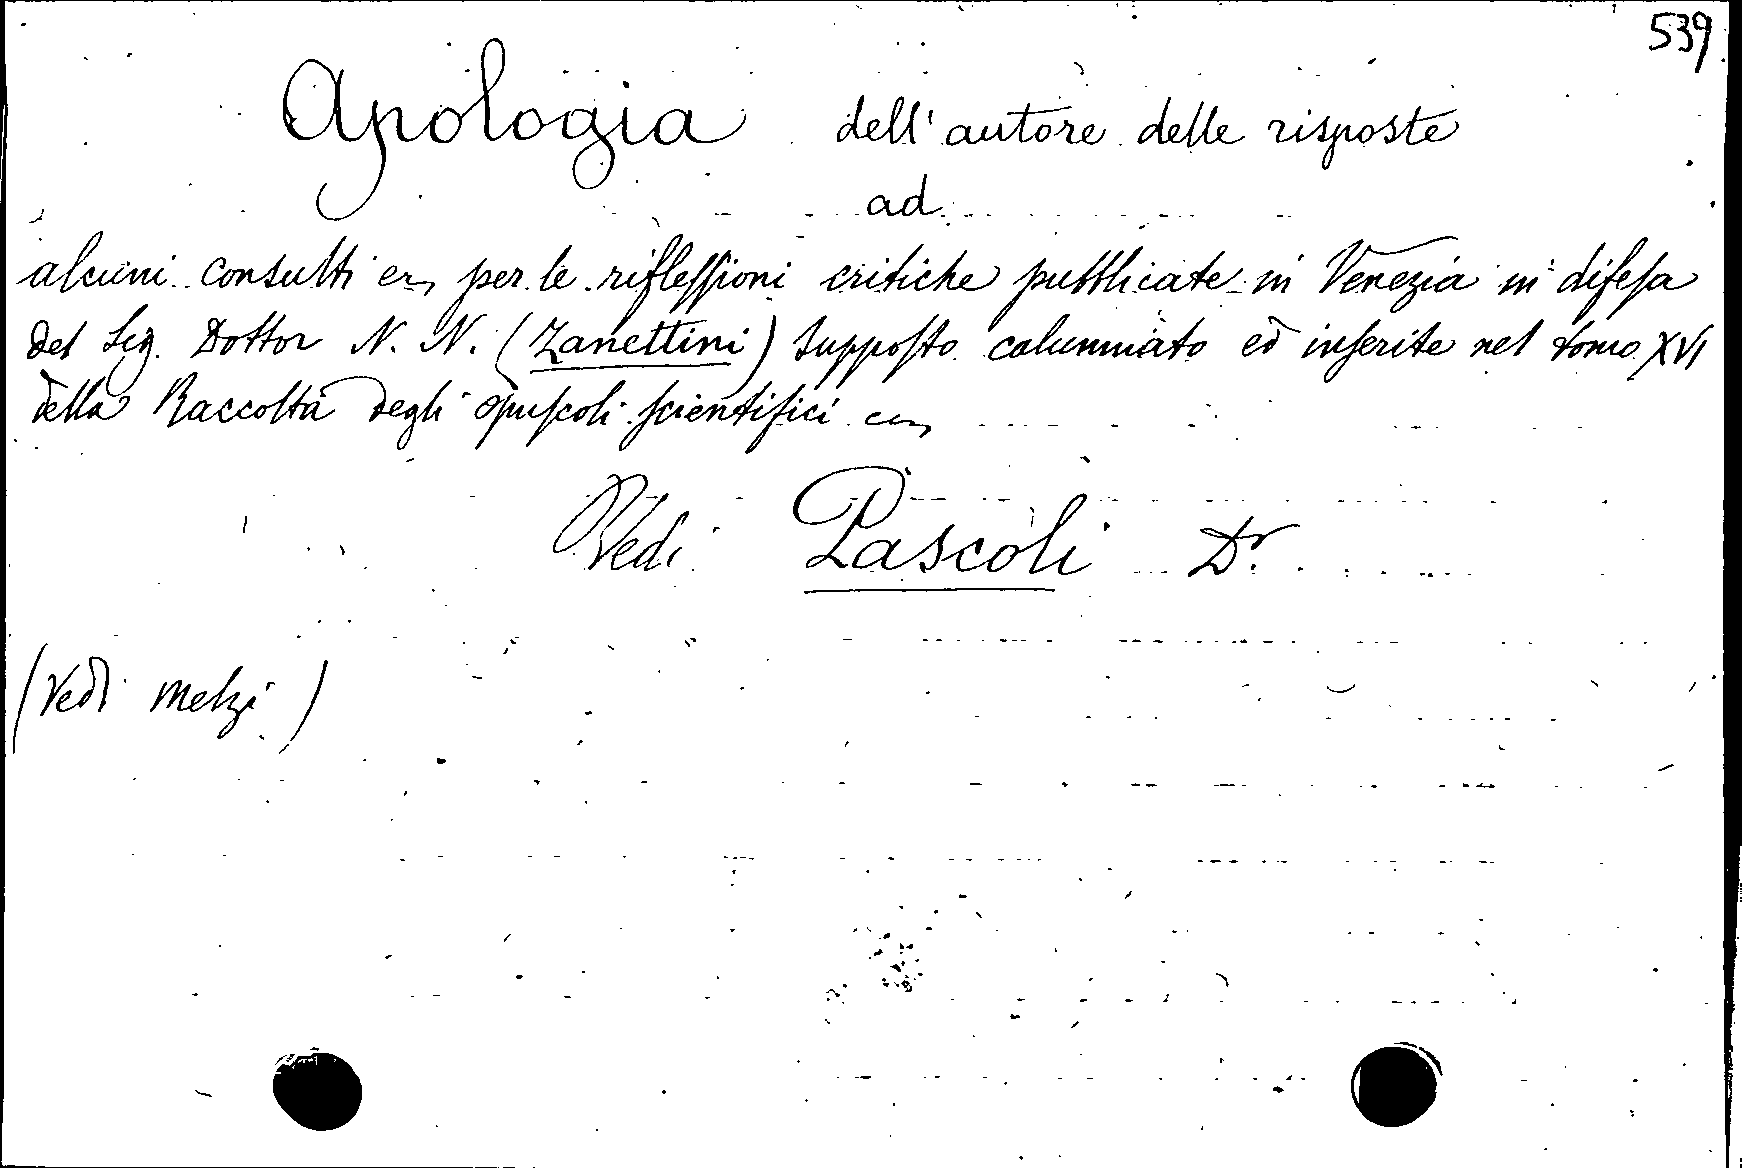 539
Apologia dell'autore delle risposte
ad
alcuni consulti ec, per le riflessioni critiche pubblicate in Venezia in difesa
del Sig. Dottor N. N. (Zanettini) supposto calunniato ed inserite nel tomo XVI
della Raccolta degli opuscoli scientifici ec,
Vedi Pascoli Dr.
(Vedi Melzi)